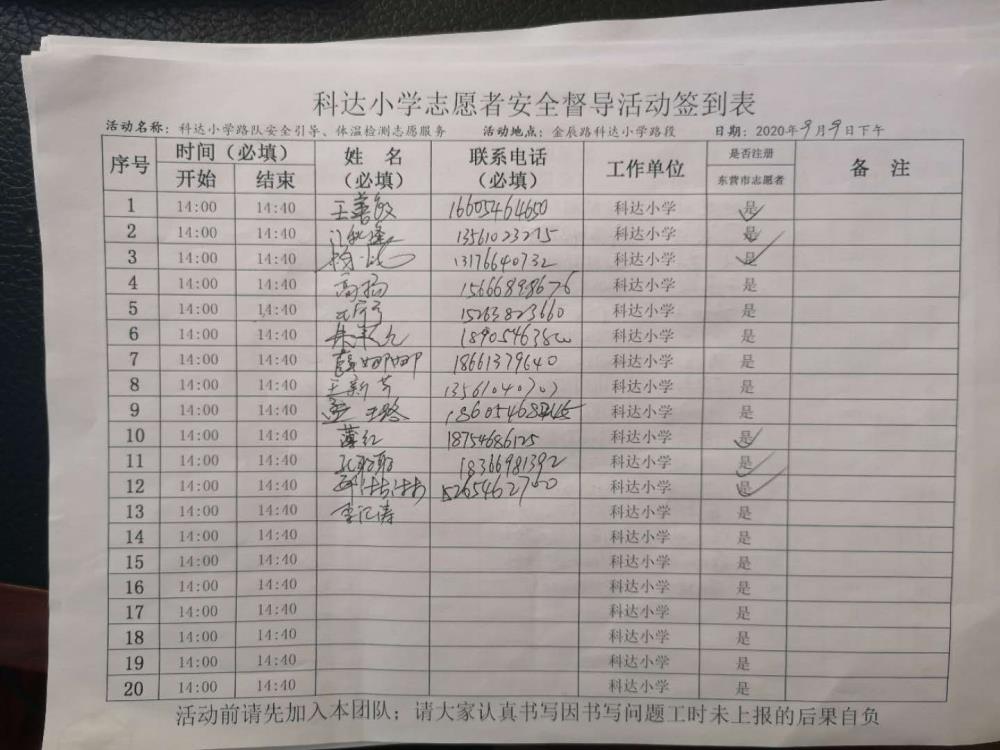 科达小学志愿者安全督导活动签到表
活动名称：科达小学路队安全引导、体温检测志愿服务 活动地点：金辰路科达小学路段 日期：2020年9月9日下午
序号 时间（必填） 姓 名（必填） 联系电话（必填） 工作单位 是否注册 备 注
开始 结束 东营市志愿者
1 14:00 14:40 王善敏 16605464650 科达小学 是
2 14:00 14:40 13561023275 科达小学 是
3 14:00 14:40 13176640732 科达小学 是
4 14:00 14:40 高扬 15666898676 科达小学 是
5 14:00 14:40 15263823660 科达小学 是
6 14:00 14:40 科达小学 是
7 14:00 14:40 薛娜娜 18661379640 科达小学 是
8 14:00 14:40 王新芳 13561040707 科达小学 是
9 14:00 14:40 孟璐 科达小学 是
10 14:00 14:40 薄红 18754686125 科达小学 是
11 14:00 14:40 孔聪聪 18366981392 科达小学 是
12 14:00 14:40 15265462700 科达小学 是
13 14:00 14:40 李汇涛 科达小学 是
14 14:00 14:40 科达小学 是
15 14:00 14:40 科达小学 是
16 14:00 14:40 科达小学 是
17 14:00 14:40 科达小学 是
18 14:00 14:40 科达小学 是
19 14:00 14:40 科达小学 是
20 14:00 14:40 科达小学 是
活动前请先加入本团队；请大家认真书写因书写问题工时未上报的后果自负